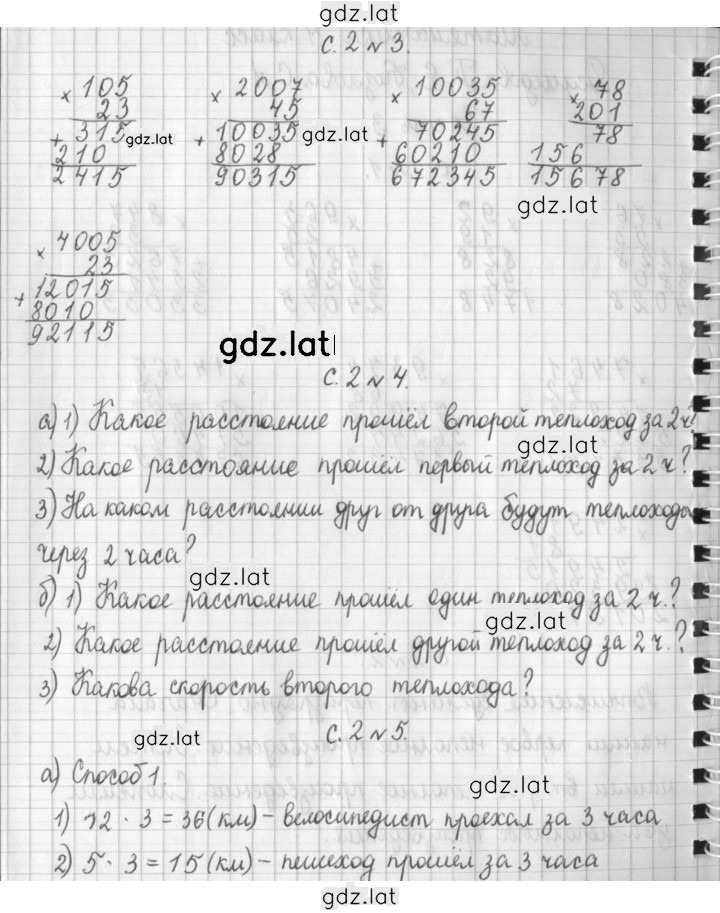 gdz.lat
с. 2 № 3.
× 105 × 2007 × 10035 × 78
23 45 67 201
+ 315 gdz.lat + 10035 gdz.lat + 70245 78
210 8028 60210 156
2415 90315 672345 15678
gdz.lat
× 4005
23
+ 12015
8010
92115
gdz.lat
с. 2 № 4.
а) 1) Какое расстояние прошёл второй теплоход за 2 ч?
gdz.lat
2) Какое расстояние прошёл первый теплоход за 2 ч?
3) На каком расстоянии друг от друга будут теплоходы
через 2 часа?
gdz.lat
б) 1) Какое расстояние прошёл один теплоход за 2 ч.?
gdz.lat
2) Какое расстояние прошёл другой теплоход за 2 ч.?
3) Какова скорость второго теплохода?
gdz.lat
с. 2 № 5.
а) Способ 1.
gdz.lat
1) 12 · 3 = 36 (км) – велосипедист проехал за 3 часа
2) 5 · 3 = 15 (км) – пешеход прошёл за 3 часа
gdz.lat